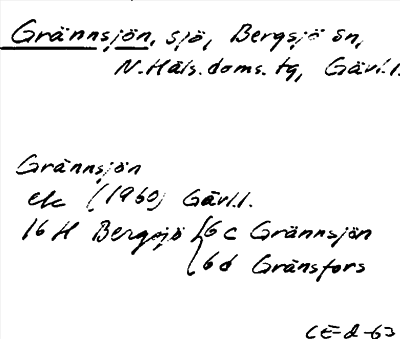 Grännsjön, sjö, Bergsjö sn,
N.Häls.doms.tg, Gävl.l.
Grännsjön
ek (1960) Gävl.l.
16 H Bergsjö 6 c Grännsjön
6 d Gränsfors